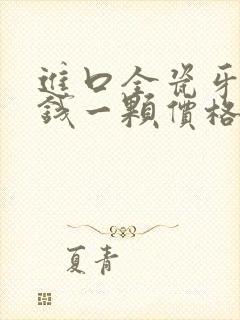 進口全瓷牙
錢一顆價格
夏青